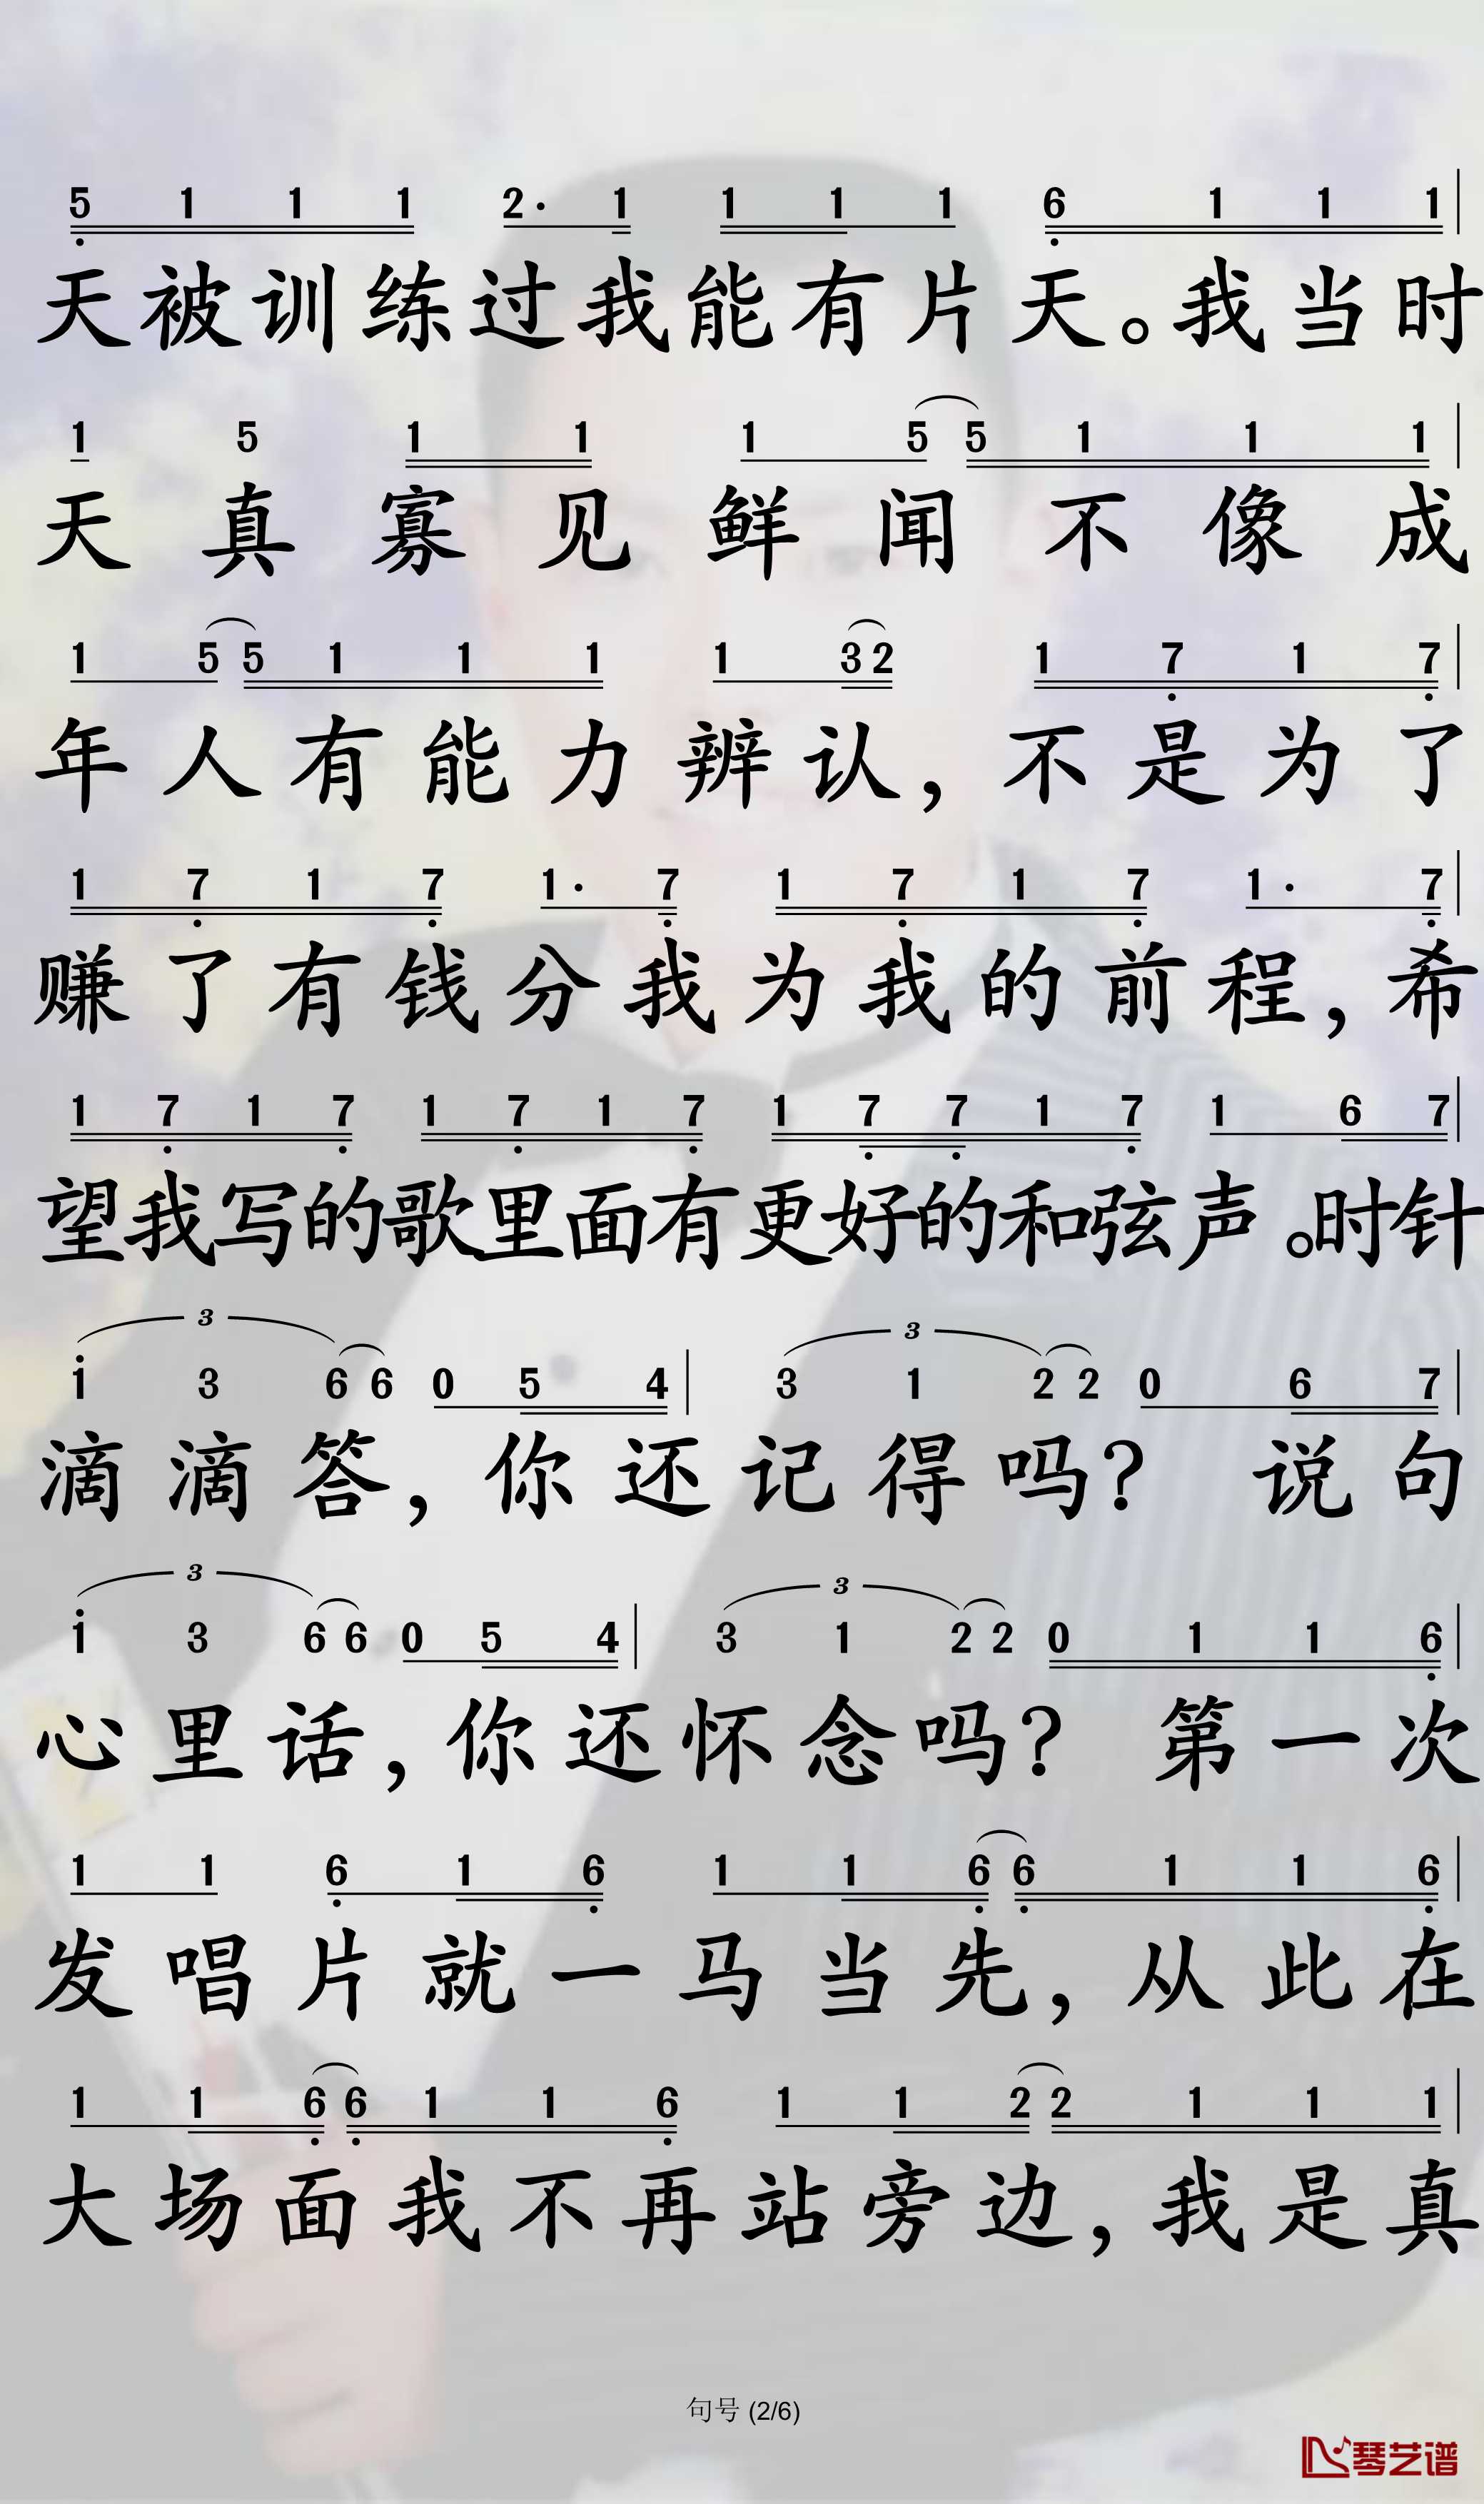 5 1 1 1 2· 1 1 1 1 6 1 1 1
天被训练过我能有片天。我当时
1 5 1 1 1 5 5 1 1 1
天真寡见鲜闻不像成
1 5 5 1 1 1 1 3 2 1 7 1 7
年人有能力辨认，不是为了
1 7 1 7 1· 7 1 7 1 7 1· 7
赚了有钱分我为我的前程，希
1 7 1 7 1 7 1 7 1 7 7 1 7 1 6 7
望我写的歌里面有更好的和弦声。时针
3 3
1 3 6 6 0 5 4 3 1 2 2 0 6 7
滴滴答，你还记得吗？ 说句
3 3
1 3 6 6 0 5 4 3 1 2 2 0 1 1 6
心里话，你还怀念吗？ 第一次
1 1 6 1 6 1 1 6 6 1 1 6
发唱片就一马当先，从此在
1 1 6 6 1 1 6 1 1 2 2 1 1 1
大场面我不再站旁边，我是真
句号 (2/6)
琴艺谱